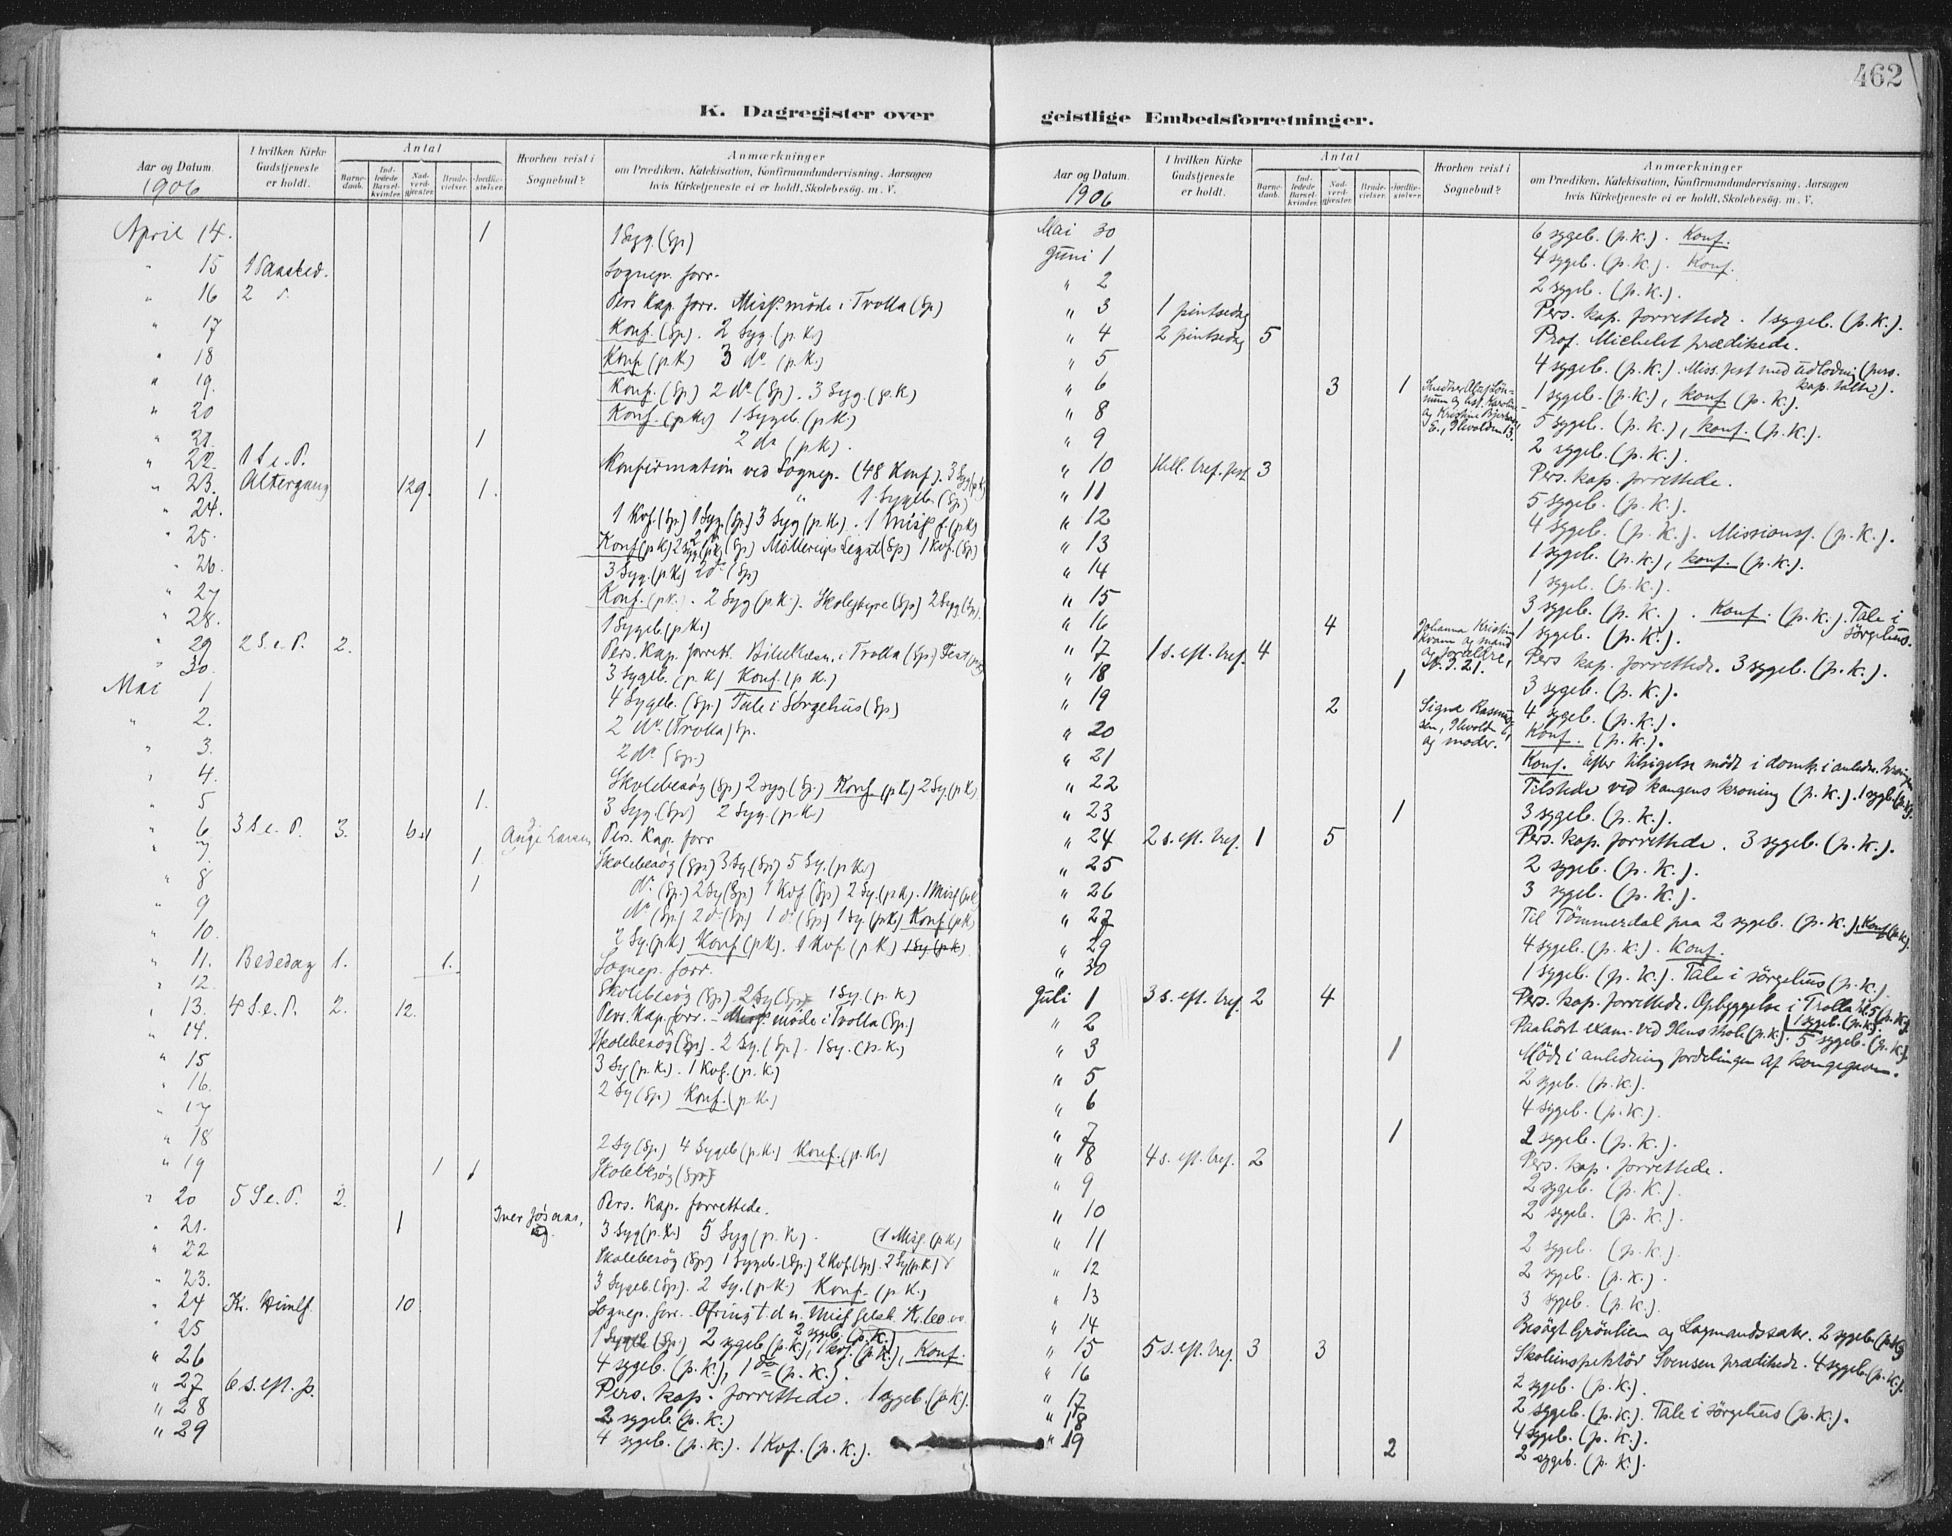 462
K. Dagregister over geistlige Embedsforretninger.
Aar og Datum.
1906
I hvilken Kirke Gudstjeneste er holdt.
Antal
Barne-daab.
Ind-ledede Barsel-kvinder.
Nad-verd-gjester.
Brude-vielser.
Jordfæ-stelser.
Hvorhen reist i Sognebud?
Anmærkninger
om Prædiken, Katekisation, Konfirmandundervisning, Aarsagen
hvis Kirketjeneste ei er holdt, Skolebesøg, m. V.
April 14. 1 1 Syg. (Sp)
" 15 Sognep. forr.
" 16 2 Pers. Kap. forr. Miss. møde i Trolla (Sp)
" 17 Konf. (Sp). 2 Syg. (p. k.)
" 18 Konf (p. k.) 3 do (p. k.)
" 19. Konf. (Sp) 2 do (Sp). 3 Syg. (p. k.)
" 20 Konf. (p k.) 1 Sygeb. (p k.)
" 21. 1 2 do (p k.).
" 22. 1 S. e. P. Konfirmation ved Sognep. (48 Konf). 3 Syg (p k)
" 23. Altergang 129. 1. 1 Sygeb. (Sp)
" 24. 1 Kof. (Sp) 1 Syg. (Sp) 3 Syg (p. k.). 1 Miss f (p k)
" 25. Konf (p k) 2 Syg (p k) (Sp) Möllerups Legat (Sp) 1 Kof. (Sp)
" 26. 3 Syg. (p. k.) 2 do (Sp)
" 27 Konf. (p k.). 2 Syg (p. k.). Skolestyre (Sp) 2 Syg (Sp)
" 28. 1 Sygeb. (p. k.)
" 29 2 S. e. P. 2. Pers. Kap. forrett. Bibellæsn. i Trolla (Sp.) Fest
" 30. 3 Sygeb. (p. k.) Konf. (p k.)
Mai 1 4 Sygeb. (Sp.) Tale i Sørgehus (Sp)
" 2. 2 do (Trolla) Sp.
" 3. 2 do (Sp.)
" 4. Skolebesøg (Sp) 2 Syg (Sp.) Konf (p k) 2 Sy. (p k)
" 5 1. 3 Syg. (Sp) 2 Syg. (p. k.)
" 6. 3 S. e. P. 3. Pers. Kap. forr
" 7 1 Skolebesøg (Sp) 3 Sy (Sp) 5 Sy. (p k.)
" 8 1 do (Sp.) 2 Sy (Sp) 1 Kof (Sp) 2 Sy. (p k). 1 Miss (p k)
" 9 do (Sp) 2 do (Sp) 1 do (Sp) 1 Sy. (p k) Konf (p k)
" 10. 2 Sy. (p k) Konf (p k). 1 Kof. (p k) 1 Sy (p k).
" 11. Bededag 1. 1. Sognep. forr.
" 12. Skolebesøg (Sp). 2 Sy (Sp) 1 Sy. (p. k.)
" 13. 4 S. e. P. 2. 12. Pers. Kap. forr. Miss. møde i Trolla (Sp.)
" 14. Skolebesøg (Sp). 2 Sy. (Sp). 1 Sy. (p. k.)
" 15 3 Sy (p. k.). 1 Kof. (p. k.)
" 16. 2 Sy (Sp) Konf. (p k.)
" 17
" 18 2 Sy (Sp) 4 Sygeb (p. k.) Konf. (p. k.)
" 19 1 1 Skolebesøg (Sp)
" 20 5 S. e. P. 2. Pers. Kap. forrettede.
" 21. 1 3 Syg (p. k.) 5 Syg (p. k.). (1 Miss. (p k)
" 22 Skolebesøg (Sp) 1 Sygeb. (Sp.) 2 Kof. (Sp). 2 Sy (p k)
" 23. 3 Sygeb. (Sp). 2 Sy. (p k.) Konf. (p. k.)
" 24 Kr. Himlf. 10 Sognep. forr. Ofring t. d. n. Miss selsk.
" 25 1 Sygeb (Sp) 2 sygeb (p. k.), 1 kof. (p. k.), Konf.
" 26 4 sygeb. (p. k.), 1 do (p. k.).
" 27 6 s. eft. p. Pers. kap. forrettede. 1 sygeb. (p k).
" 28 2 sygeb. (p. k.)
" 29 4 sygeb. (p. k.). 1 Kof. (p. k.).
Aar og Datum.
1906
I hvilken Kirke Gudstjeneste er holdt.
Antal
Barne-daab.
Ind-ledede Barsel-kvinder.
Nad-verd-gjester.
Brude-vielser.
Jordfæ-stelser.
Hvorhen reist i Sognebud?
Anmærkninger
om Prædiken, Katekisation, Konfirmandundervisning, Aarsagen
hvis Kirketjeneste ei er holdt, Skolebesøg, m. V.
Mai 30 6 sygeb. (p. k.). Konf.
Juni 1 4 sygeb. (p. k.). Konf.
" 2 2 sygeb. (p. k.).
" 3 1 pintsedag Pers. kap. forrettede. 1 sygeb. (p. k.).
" 4 2 pintsedag 5 Prof. Michelet prædikede.
" 5 4 sygeb. (p. k.). Miss. fest med udlodning (pers. kap. talte).
" 6 3 1 1 sygeb. (p. k.), konf (p. k.).
" 8 5 sygeb. (p. k.), konf. (p. k.).
" 9 2 sygeb. (p. k.).
" 10 Hell. tref. fest 3 Pers. kap. forrettede.
" 11 5 sygeb. (p. k.).
" 12 4 sygeb. (p. k.). Missionsf. (p. k.).
" 13 1 sygeb. (p. k.), konf. (p. k.).
" 14 1 sygeb. (p. k.).
" 15 3 sygeb. (p. k.). Konf. (p. k.). Tale i sørgehus.
" 16 4 Johanna Kristine Kvam og mand og forældre, 1 sygeb. (p. k.).
" 17 1 s. eft. tref. 4 Pers kap. forrettede. 3 sygeb. (p. k.).
" 18 1 3 sygeb. (p. k.).
" 19 2 Signe Rasmussen, Ilevolden og moder. 4 sygeb. (p. k.).
" 20 Konf. (p. k.).
" 21 Konf. Efter tilsigelse mødt i domk. i anledn.
" 22 Tilstede ved kongens kroning (p. k.). 1 sygeb. (p. k.).
" 23 1 3 sygeb. (p. k.).
" 24 2 s. eft. tref. 1 5 Pers. kap. forrettede. 3 sygeb. (p. k.).
" 25 2 sygeb. (p. k.).
" 26 3 sygeb. (p. k.).
" 27 Til Tømmerdal paa 2 sygeb. (p. k.), Konf (p. k).
" 29 4 sygeb. (p. k.). Konf.
" 30 1 sygeb. (p. k.). Tale i sørgehus (p. k.)
Juli 1 3 s. eft. tref. 2 4 Pers. kap. forrettede. Opbyggelse i Trolla (p. k.)
1 sygeb. (p. k.).
" 2 Paahørt exam. ved Ilens skole (p. k.). 5 sygeb. (p. k.).
" 3 1 Møde i anledning fordelingen af kongegaven.
" 5 2 sygeb. (p. k.).
" 6 4 sygeb. (p. k.).
" 7 1 2 sygeb. (p. k.).
" 8 4 s. eft. tref. 2 Pers. kap. forrettede.
" 9 2 sygeb. (p. k.).
" 10 2 sygeb. (p. k.).
" 11 2 sygeb. (p. k.).
" 12 2 sygeb. (p. k.).
" 13 3 sygeb. (p. k.).
" 14 Besøgt Grønlien og Lagmandssæter. 2 sygeb. (p. k.)
" 15 5 s. eft. tref. 3 3 Skoleinspektør Svensen prædikede. 4 sygeb. (p. k.).
" 16 2 sygeb. (p. k.).
" 17 2 sygeb. (p. k.). Tale i sørgehus (p. k.).
" 18 4 sygeb. (p. k.).
" 19 2 2 sygeb. (p. k.).